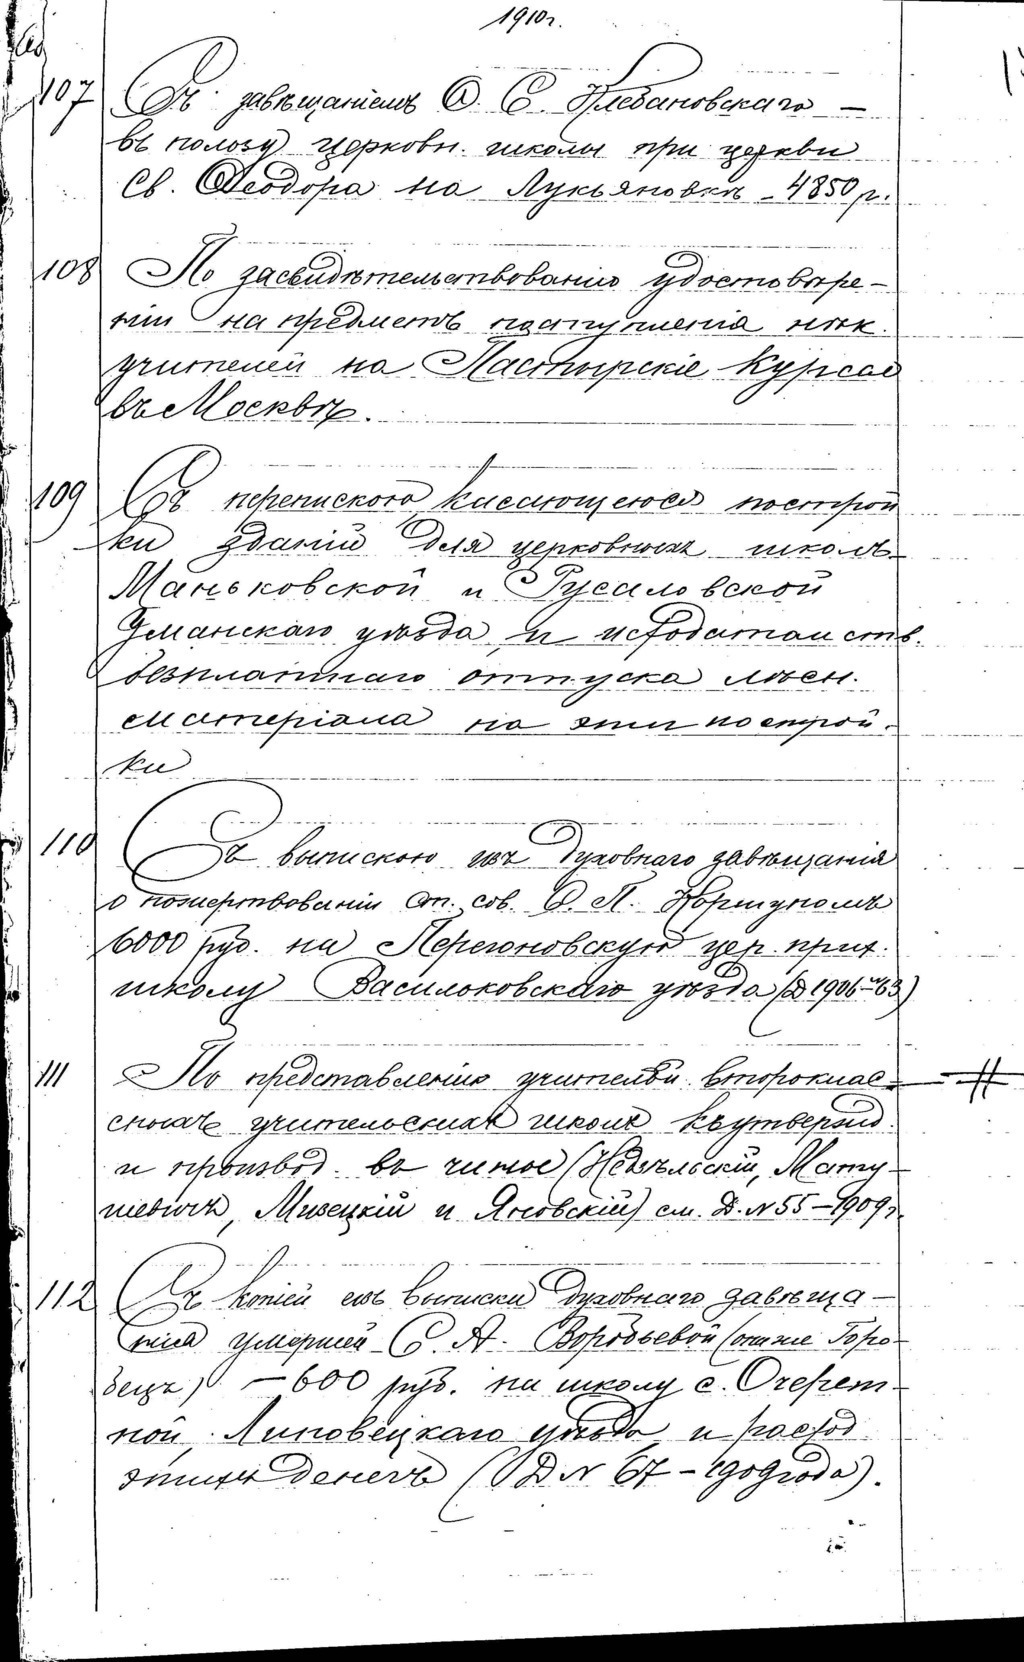 1910г.
107 Съ завѣщаніемъ О. С. Клебановскаго —
въ пользу церковн. школы при церкви
Св. Ѳеодора на Лукьяновкѣ - 4850 р.
108 По засвидѣтельствованію удостовѣре-
нія на предметъ поступленія нѣк.
учителей на Пастырскіе Курсы
въ Москвѣ.
109 Съ перепискою касающеюся построй
ки зданій для церковныхъ школъ
Маньковской и Русаловской
Уманскаго уѣзда и исходатайств.
безплатнаго отпуска лѣсн.
матеріала на эти построй-
ки
110 Съ выпискою изъ духовнаго завѣщанія
о пожертвованіи ст. сов. П. Коршуномъ
6000 руб. на Перегоновскую цер. прих.
школу Васильковскаго уѣзда (Д 1906 - 63)
111 По представленію учителей второклас-
сныхъ учительскихъ школъ къ утвержд.
и производ. въ чинъ (Недзѣльскій, Мату-
шевичъ, Мизецкій и Яновскій) см. Д. № 55 - 1909 г.
112 Съ копіей изъ выписки духовнаго завѣща-
нія умершей С. А. Воробьевой (она же Горо-
бецъ) - 600 руб. на школу с. Очерет-
ной, Липовецкаго уѣзда и расход
этихъ денегъ (Д № 67 - 1909 года).